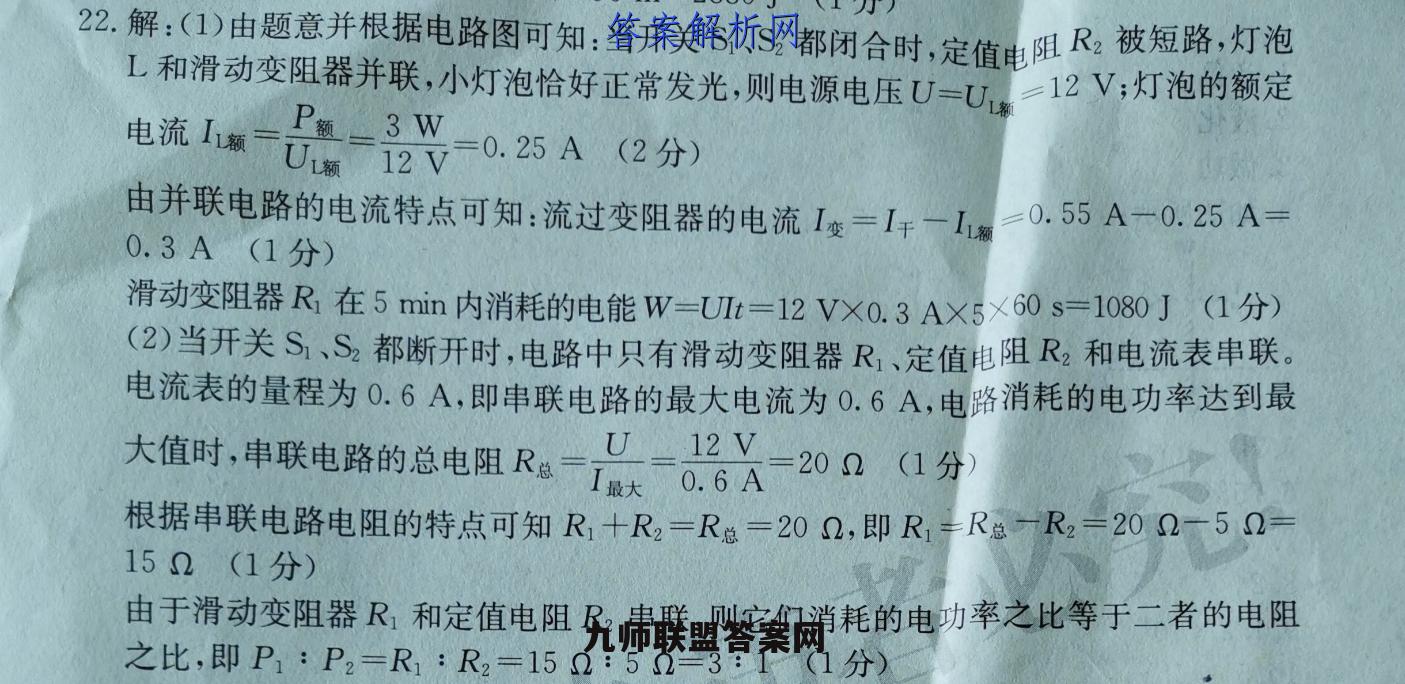 22. 解:(1)由题意并根据电路图可知:当开关S₁、S₂都闭合时,定值电阻 R₂ 被短路,灯泡
答案解析网
L 和滑动变阻器并联,小灯泡恰好正常发光,则电源电压U=U_L额=12 V;灯泡的额定
电流 I_L额=P额/U_L额=3 W/12 V=0.25 A (2分)
由并联电路的电流特点可知:流过变阻器的电流 I变=I干-I_L额=0.55 A-0.25 A=
0.3 A (1分)
滑动变阻器 R₁ 在 5 min 内消耗的电能 W=UIt=12 V×0.3 A×5×60 s=1080 J (1分)
(2)当开关 S₁、S₂ 都断开时,电路中只有滑动变阻器 R₁、定值电阻 R₂ 和电流表串联。
电流表的量程为 0.6 A,即串联电路的最大电流为 0.6 A,电路消耗的电功率达到最
大值时,串联电路的总电阻 R总=U/I最大=12 V/0.6 A=20 Ω (1分)
根据串联电路电阻的特点可知 R₁+R₂=R总=20 Ω,即 R₁=R总-R₂=20 Ω-5 Ω=
15 Ω (1分)
由于滑动变阻器 R₁ 和定值电阻 R₂ 串联,则它们消耗的电功率之比等于二者的电阻
九师联盟答案网
之比,即 P₁:P₂=R₁:R₂=15 Ω:5 Ω=3:1 (1分)